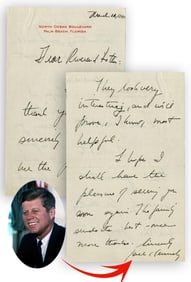 North Ocean Boulevard
Palm Beach, Florida
Dear Reverend
thank y
sincerely
me the
They look very
interesting, and will
prove, I know, most
helpful.
I hope I
shall have the
pleasure of seeing you
soon again. The family
but once
more thanks. Sincerely